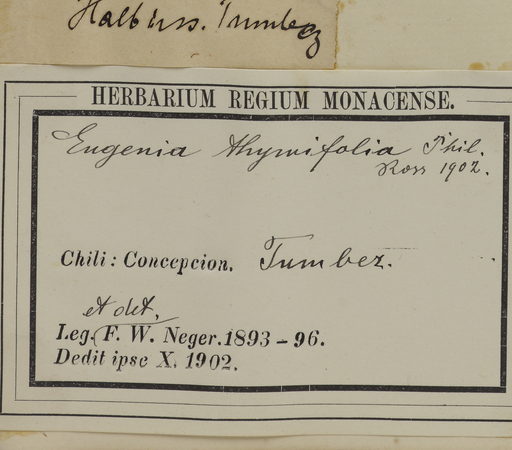 Halbins. Tumbez
HERBARIUM REGIUM MONACENSE.
Eugenia thymifolia Phil.
Ross 1902.
Chili: Concepcion. Tumbez.
et det.
Leg. F. W. Neger. 1893-96.
Dedit ipse X. 1902.